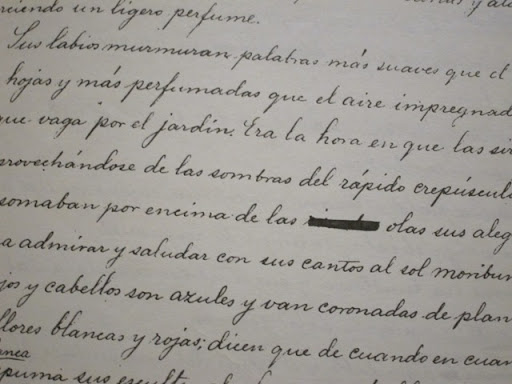 ciendo un ligero perfume.
Sus labios murmuran palabras más suaves que el
hojas y más perfumadas que el aire impregnad
que vaga por el jardín. Era la hora en que las sir
provechándose de las sombras del rápido crepúsculo
somaban por encima de las olas sus aleg
a admirar y saludar con sus cantos al sol moribun
jos y cabellos son azules y van coronadas de plan
flores blancas y rojas; dicen que de cuando en cuan
puma sus